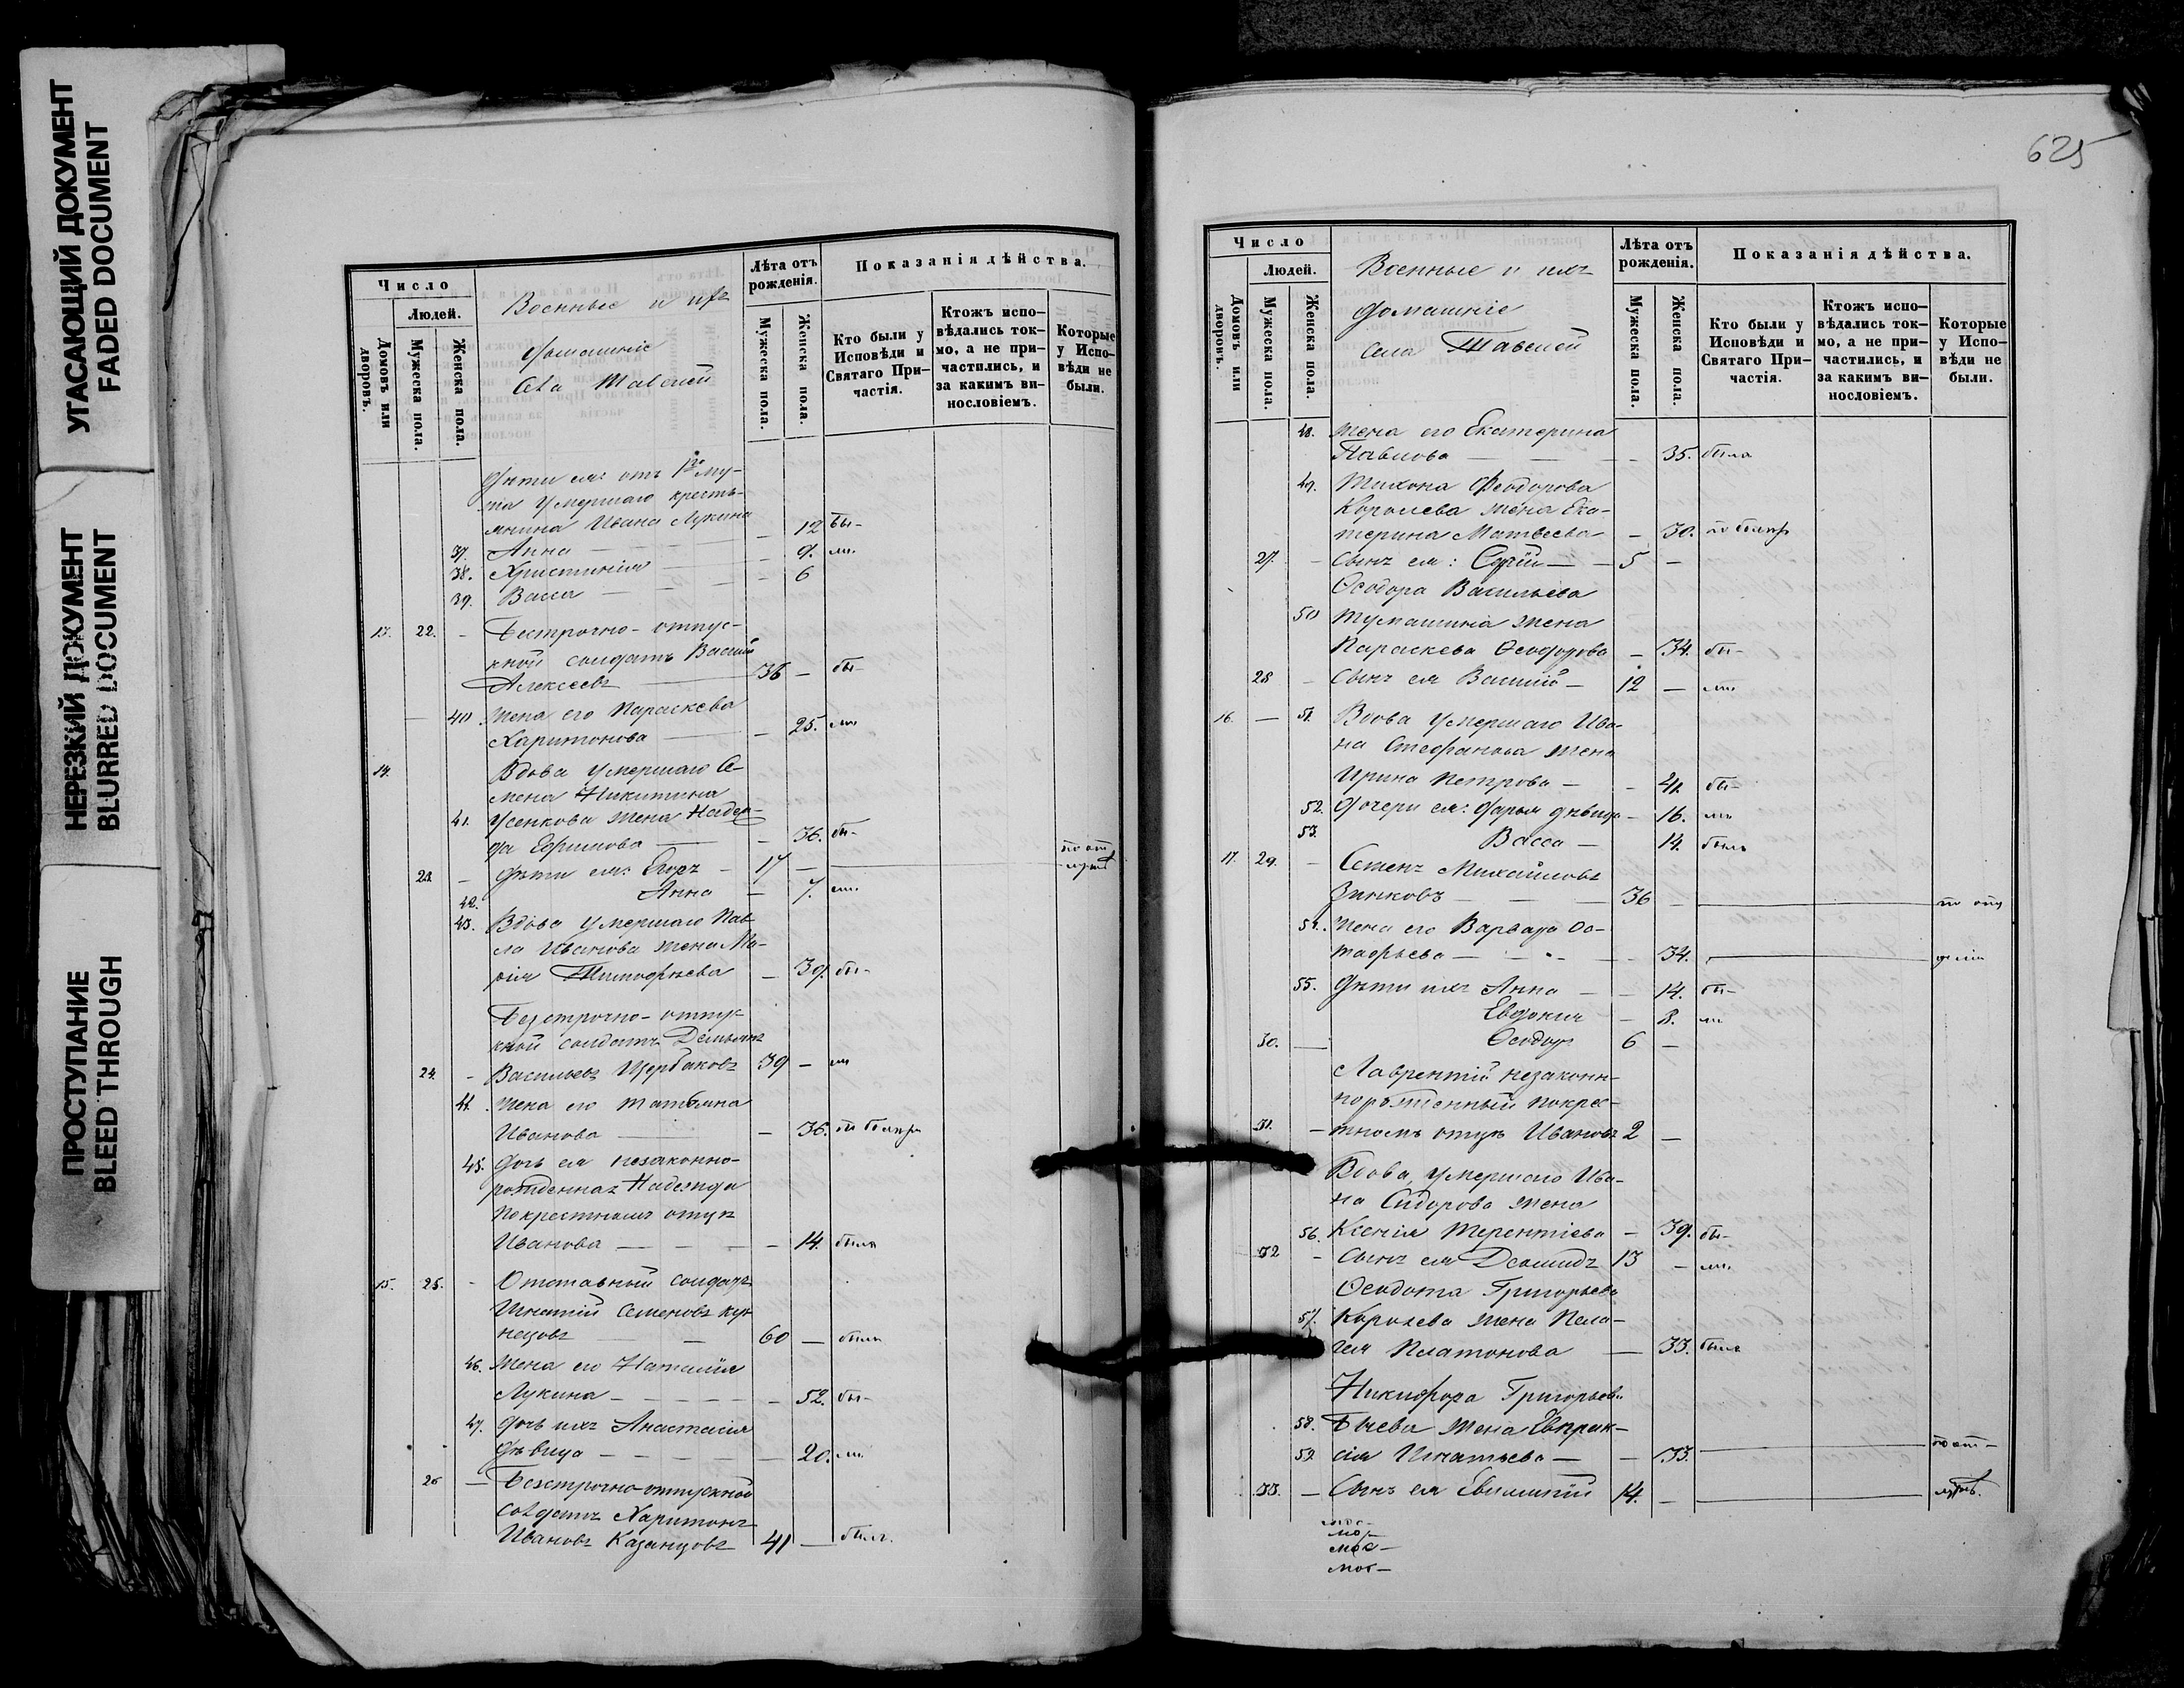 УГАСАЮЩИЙ ДОКУМЕНТ
FADED DOCUMENT
НЕРЕЗКИЙ ДОКУМЕНТ
BLURRED DOCUMENT
ПРОСТУПАНИЕ
BLEED THROUGH
Число
Людей.
Домовъ или дворовъ.
Мужеска пола.
Женска пола.
Военные и ихъ
домашніе
Села
Лѣта отъ рожденія.
Мужеска пола.
Женска пола.
Показанія дѣйства.
Кто были у Исповѣди и Святаго При-частія.
Ктожъ испо-вѣдались ток-мо, а не при-частились, и за какимъ ви-нословіемъ.
Которые у Испо-вѣди не были.
Дѣти ея: отъ 1го му-
жа умершаго кресть-
янина Ивана Лукина
37. Анна — 12 бы-
38. Христинія — 9. ли.
39. Васса — 6
13. 22. - Безсрочно-отпус-
кной солдатъ Василій
Алексеевъ 36 — бы-
40. Жена его Параскева
Харитонова — 25. ли
14. Вдова умершаго Се-
мена Никитина
41. Усенкова жена Надеж-
да Ефимова — 36. бы-
23. - Дѣти ея: Егоръ 17 — по от
42. Анна — 7. ли.
43. Вдова умершаго Пав-
ла Иванова жена Ма-
рія Тимофѣева — 39. бы-
Безсрочно-отпус-
кной солдатъ Демьянъ
24. - Васильевъ Щербаковъ 39 — ли
44. Жена его Татьяна
Иванова — 36.
45. Дочь ея незаконно-
рожденная Надежда
по крестномъ отцѣ
Иванова — 14. была
15. 25. - Отставный солдатъ
Игнатій Семеновъ Куз-
нецовъ 60 — былъ
46. Жена его Наталія
Лукина — 52. бы-
47. Дочь ихъ Анастасія
дѣвица — 20. ли.
26 — Безсрочно-отпускной
солдатъ Харитонъ
Ивановъ Казанцовъ 41 — былъ.
625
Число
Людей.
Домовъ или дворовъ.
Мужеска пола.
Женска пола.
Военные и ихъ
домашніе
села
Лѣта отъ рожденія.
Мужеска пола.
Женска пола.
Показанія дѣйства.
Кто были у Исповѣди и Святаго При-частія.
Ктожъ испо-вѣдались ток-мо, а не при-частились, и за какимъ ви-нословіемъ.
Которые у Испо-вѣди не были.
48. Жена его Екатерина
Павлова — 35. была
49. Тихона Феодорова
Королева жена Ека-
терина Матвеева — 30.
27. - Сынъ ея: Сергій — 5 —
Ѳеодора Васильева
50 Тумашина жена
Параскева Ѳеодорова — 34. бы-
28 - Сынъ ея Василій — 12 — ли
16. — 51. Вдова умершаго Ива-
на Стефанова жена
Ирина Петрова — 41. бы-
52. Дочери ея: Дарья дѣвица — 16. ли
53. Васса — 14. были
17. 29. - Семенъ Михайловъ
Зинковъ — 36 — по отл
54. Жена его Варвара Ос-
тафьева — 34.
55. Дѣти ихъ Анна — 14. бы-
Евдокия — 8. ли
30. — Ѳеодоръ 6 —
Лаврентій незаконн-
норожденный по крес-
31. - тномъ отцѣ Ивановъ 2 —
Вдова, умершаго Ива-
на Сидорова жена
56. Ксенія Терентіева — 39. бы-
32 - Сынъ ея Деомидъ 13 — ли.
Ѳеодота Григорьева
57. Королева жена Пела-
гея Платонова — 33. была
Никифора Григорьева
58. Бычева жена Евпрак-
59 сія Игнатьева — 33. по от-
33. — Сынъ ея Евтихій 14. —